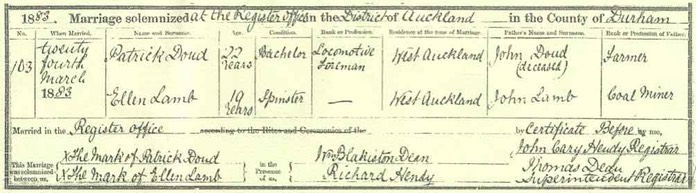 1883. Marriage solemnized at the Register office in the District of Auckland in the County of Durham
No. When Married. Name and Surname. Age. Condition. Rank or Profession. Residence at the time of Marriage. Father's Name and Surname. Rank or Profession of Father.
103 twenty fourth March 1883 Patrick Doud 22 Years Bachelor Locomotive Foreman West Auckland John Doud (deceased) Farmer
Ellen Lamb 19 Years Spinster — West Auckland John Lamb Coal Miner
Married in the Register office according to the Rites and Ceremonies of the by Certificate Before by me,
This Marriage was solemnized between us, X The Mark of Patrick Doud X The Mark of Ellen Lamb in the Presence of us, Wm Blakiston Dian Richard Hendy John Cary Hendy Registrar Thomas Superintendent Registrar